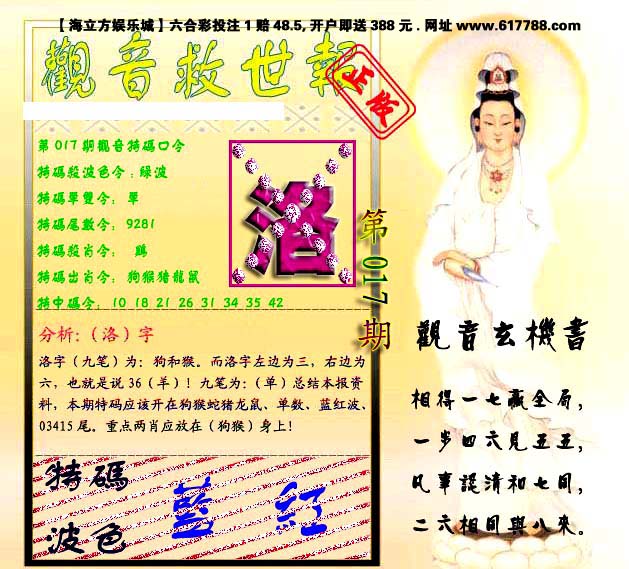 【海立方娱乐城】六合彩投注1赔48.5,开户即送388元.网址www.617788.com
觀音救世報
正传
第017期觀音特碼口令
特碼殺波色令:綠波
特碼單雙令: 單
特碼尾數令: 9281
特碼殺肖令: 鷄
特碼出肖令: 狗猴猪龍鼠
特中碼令: 10 18 21 26 31 34 35 42
洛
第017期
分析:(洛)字
洛字(九笔)为:狗和猴。而洛字左边为三,右边为
六,也就是说36(羊)!九笔为:(单)总结本报资
料,本期特码应该开在狗猴蛇猪龙鼠、单数、蓝红波、
03415尾。重点两肖应放在(狗猴)身上!
特碼
波色
藍 紅
觀音玄機書
相得一七贏全局,
一步四六見五五,
凡事認清和七同,
二六相同與八來。